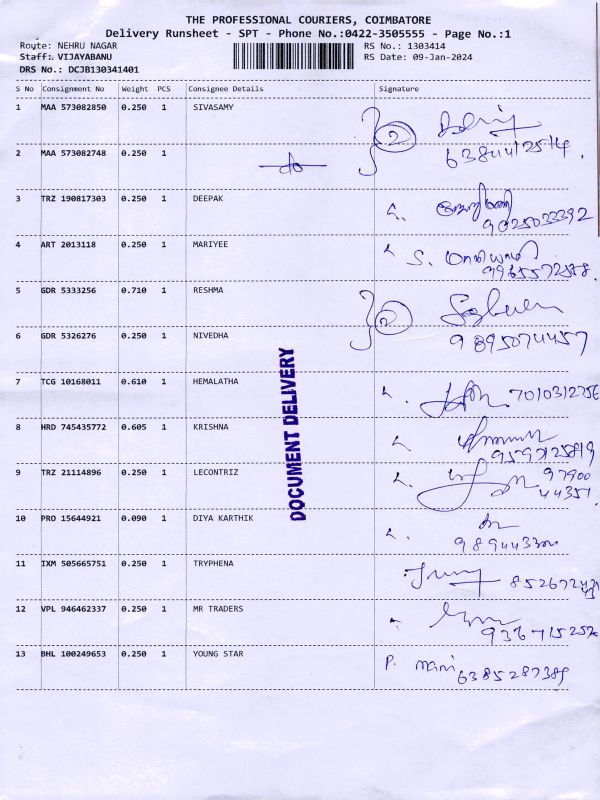 THE PROFESSIONAL COURIERS, COIMBATORE
Delivery Runsheet - SPT - Phone No.:0422-3505555 - Page No.:1
Route: NEHRU NAGAR
Staff: VIJAYABANU
DRS No.: DCJB130341401
RS No.: 1303414
RS Date: 09-Jan-2024
S No Consignment No Weight PCS Consignee Details Signature
1 MAA 573082850 0.250 1 SIVASAMY 2
6384412514
2 MAA 573082748 0.250 1 do
3 TRZ 190817303 0.250 1 DEEPAK
9025033392
4 ART 2013118 0.250 1 MARIYEE S.
9965572558
5 GDR 5333256 0.710 1 RESHMA 2
6 GDR 5326276 0.250 1 NIVEDHA 9895074457
7 TCG 10168011 0.610 1 HEMALATHA 7010312756
8 HRD 745435772 0.605 1 KRISHNA
9597125819
9 TRZ 21114896 0.250 1 LECONTRIZ 97900
44351
10 PRO 15644921 0.090 1 DIYA KARTHIK
11 IXM 505665751 0.250 1 TRYPHENA
12 VPL 946462337 0.250 1 MR TRADERS
13 BHL 100249653 0.250 1 YOUNG STAR P. mani
6385287389
DOCUMENT DELIVERY